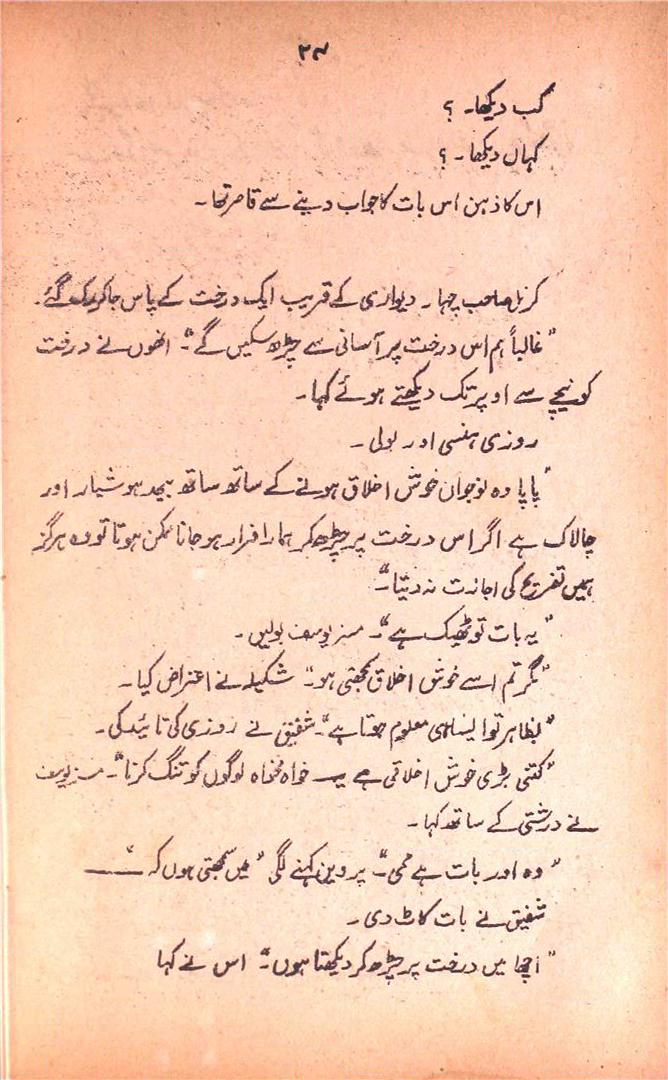 ۲۷
کب دیکھا۔ ؟
کہاں دیکھا۔ ؟
اس کا ذہن اس بات کا جواب دینے سے قاصر تھا۔
کرنل صاحب چہار دیواری کے قریب ایک درخت کے پاس جا کر رک گئے۔
"غالباً ہم اس درخت پر آسانی سے چڑھ سکیں گے"۔ انھوں نے درخت
کو نیچے سے اوپر تک دیکھتے ہوئے کہا۔
روزی ہنسی اور بولی۔
"پاپا وہ نوجوان خوش اخلاق ہونے کے ساتھ ساتھ بیحد ہوشیار اور
چالاک ہے اگر اس درخت پر چڑھ کر ہمارا فرار ہو جانا ممکن ہوتا تو وہ ہرگز
ہمیں تفریح کی اجازت نہ دیتا"۔
"یہ بات تو ٹھیک ہے"۔ مسز یوسف بولیں۔
"مگر تم اسے خوش اخلاق سمجھتی ہو"۔ شکیلہ نے اعتراض کیا۔
"بظاہر تو ایسا ہی معلوم ہوتا ہے"۔ شفیق نے روزی کی تائید کی۔
"کتنی بڑی خوش اخلاقی ہے یہ خواہ مخواہ لوگوں کو تنگ کرنا"۔ مسز یوسف
نے درشتی کے ساتھ کہا۔
"وہ اور بات ہے ممی"۔ پروین کہنے لگی "میں سمجھتی ہوں کہ ——"
شفیق نے بات کاٹ دی۔
"اچھا میں درخت پر چڑھ کر دیکھتا ہوں"۔ اس نے کہا